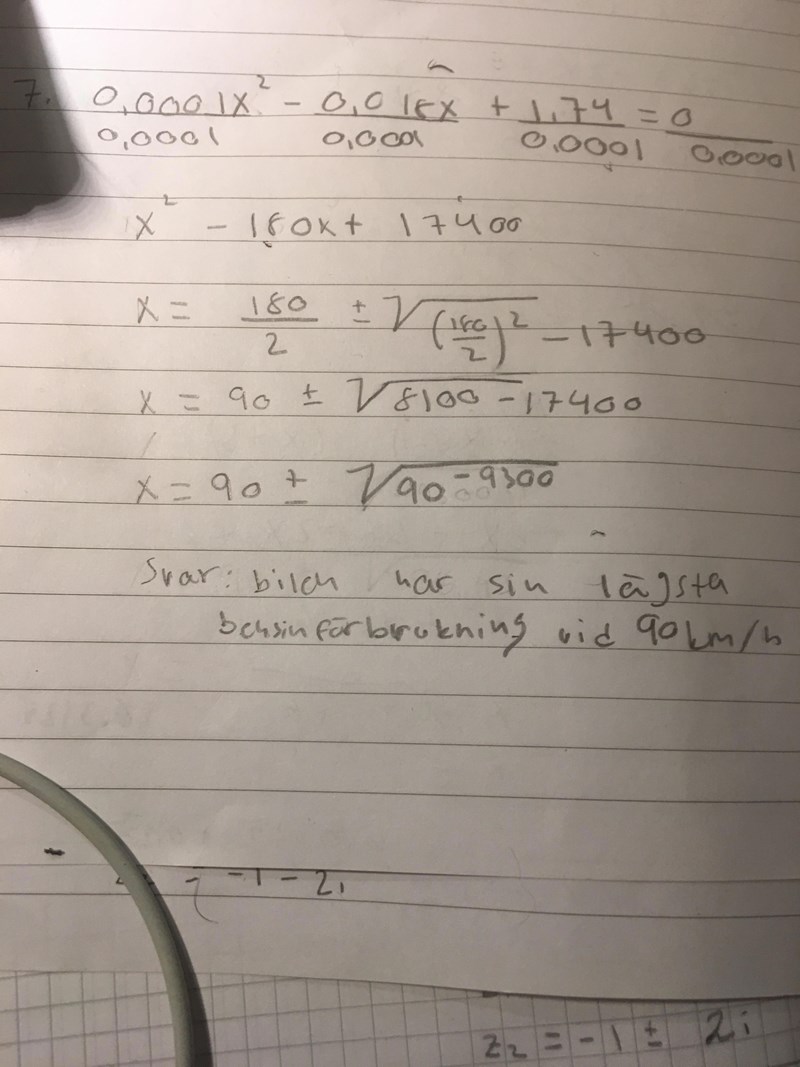 7. 0,0001x² - 0,018x + 1,74 = 0
0,0001 0,0001 0,0001 0,0001
x² - 180x + 17400
x = 180/2 ± √(180/2)² - 17400
x = 90 ± √8100 - 17400
x = 90 ± √90 - 9300
Svar: bilen har sin lägsta
bensinförbrukning vid 90km/h
-1 - 2i
z₂ = -1 ± 2i